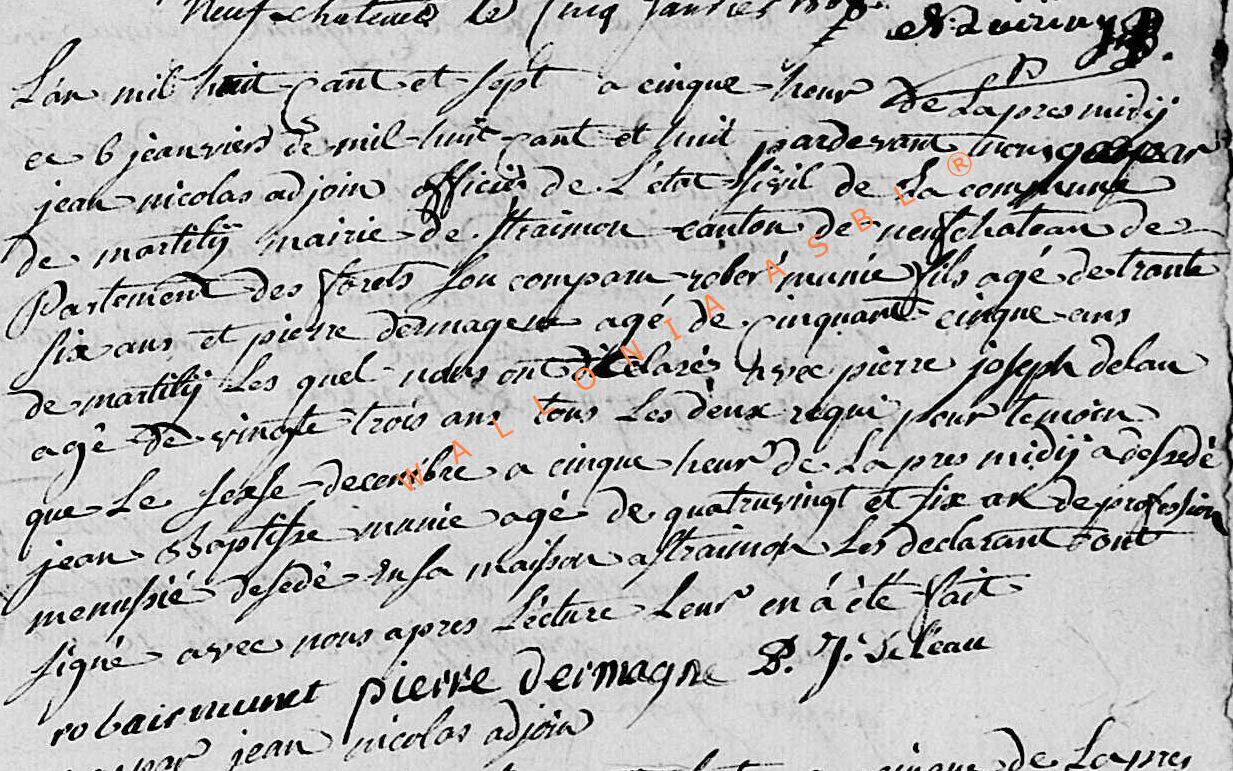 Neufchateau le cinq janvier
L'an mil huit cant et sept a cinque heur de Lapres midij
et 6 jeanviers de mil huit cant et huit pardevant nous gaspar
jean nicolas adjoin officier de L'état sivil de La commune
de martilij mairie de straimon canton de neufchateau de
Partement des forets son comparu rober munie fils agé de trante
six ans et pierre dermagne agé de cinquant cinque ans
de martilij Les quel nous ont déclaré avec pierre joseph delau
agé de vingte trois ans tous Les deux requi pour temoin
que Le sexse decembre a cinque heur de Lapres midij a desedé
jean Baptiste munie agé de quatruvingt et six an de profession
menussié desedé en sa maison a straimon Les declarant ont
signé avec nous apres Lecture Leur en á été fait
robair munet pierre dermagne P. J. deleau
gaspar jean nicolas adjoin
cinque de Lapres
WALLONIA ASBL ®